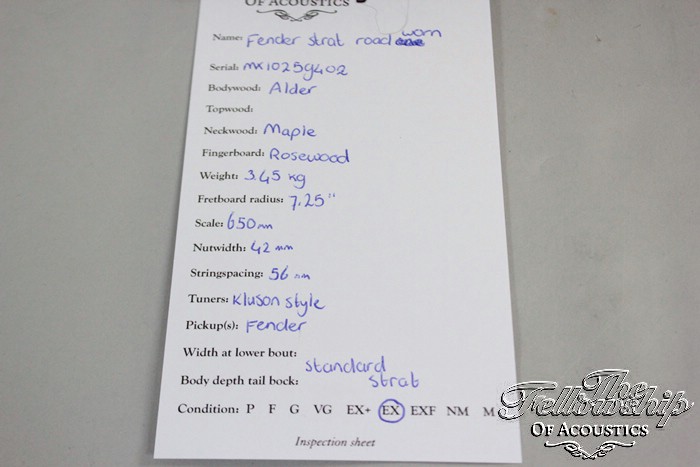 OF ACOUSTICS
Name: Fender strat road worn
Serial: MX10259402
Bodywood: Alder
Topwood:
Neckwood: Maple
Fingerboard: Rosewood
Weight: 3.45 kg
Fretboard radius: 7.25"
Scale: 650mm
Nutwidth: 42 mm
Stringspacing: 56 mm
Tuners: Kluson style
Pickup(s): Fender
Width at lower bout:
standard
Body depth tail bock: strat
Condition: P F G VG EX+ EX EXF NM M
Inspection sheet
The
Fellowship
OF ACOUSTICS